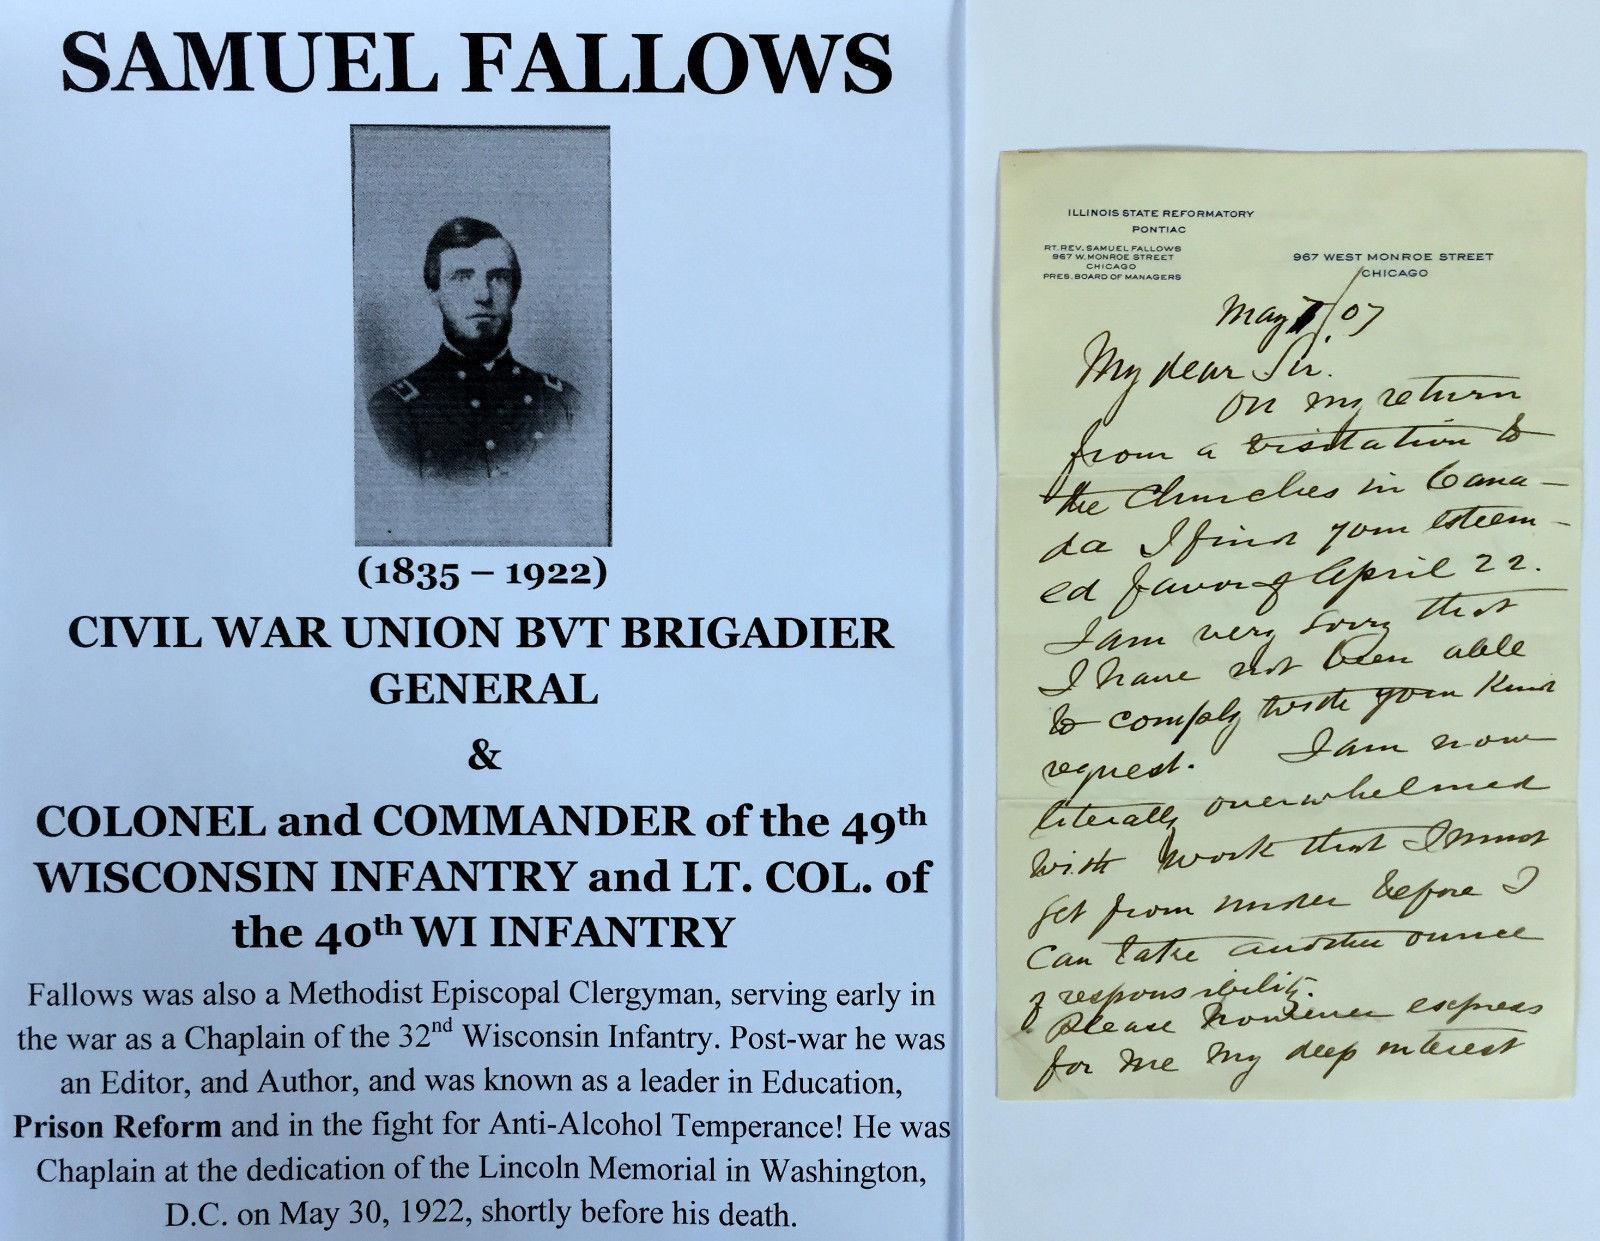 SAMUEL FALLOWS
(1835 – 1922)
CIVIL WAR UNION BVT BRIGADIER
GENERAL
&
COLONEL and COMMANDER of the 49th
WISCONSIN INFANTRY and LT. COL. of
the 40th WI INFANTRY
Fallows was also a Methodist Episcopal Clergyman, serving early in
the war as a Chaplain of the 32nd Wisconsin Infantry. Post-war he was
an Editor, and Author, and was known as a leader in Education,
Prison Reform and in the fight for Anti-Alcohol Temperance! He was
Chaplain at the dedication of the Lincoln Memorial in Washington,
D.C. on May 30, 1922, shortly before his death.
ILLINOIS STATE REFORMATORY
PONTIAC
RT. REV. SAMUEL FALLOWS
967 W. MONROE STREET
CHICAGO
PRES. BOARD OF MANAGERS
967 WEST MONROE STREET
CHICAGO
May /07
My dear Sir.
On my return
from a visitation to
the Churches in Cana-
da I find your esteem-
ed favor of April 22.
I am very sorry that
I have not been able
to comply with your kind
request. I am now
literally overwhelmed
with work that I must
get from under before I
can take another ounce
of responsibility.
Please however express
for me my deep interest